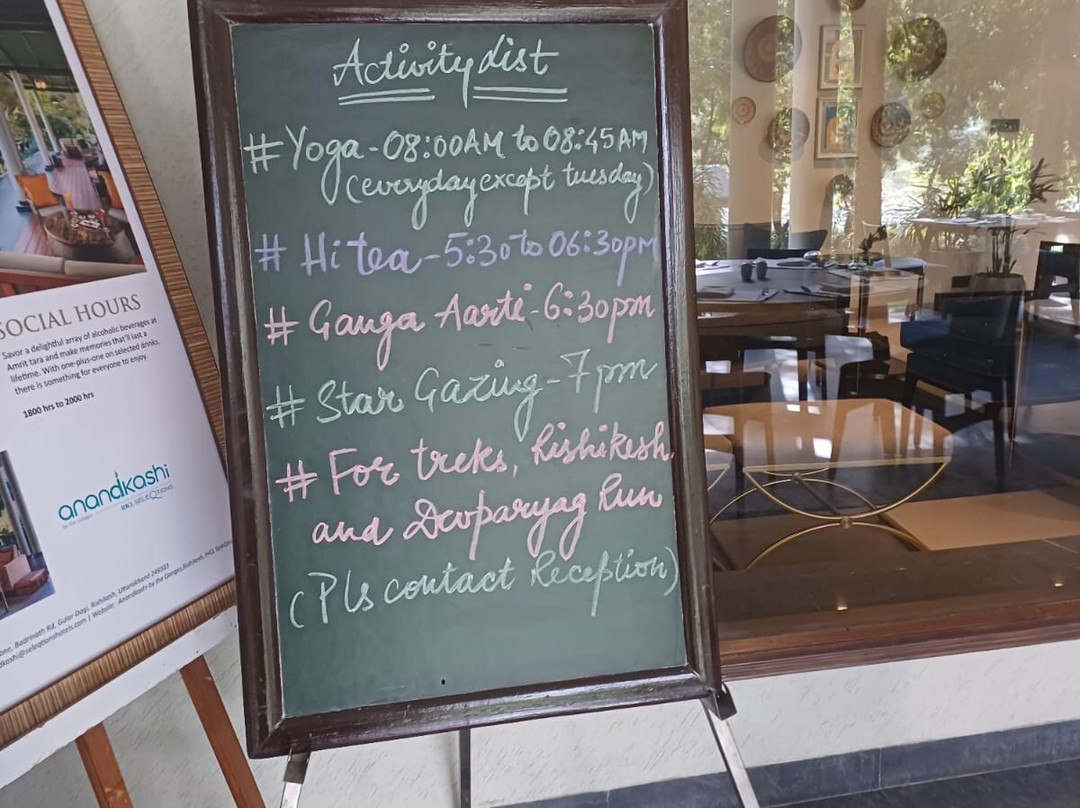 Activity List
# Yoga - 08:00AM to 08:45AM
(everyday except tuesday)
# Hi tea - 5:30 to 06:30pm
# Ganga Aarti - 6:30pm
# Star Gazing - 7pm
# For treks, Rishikesh
and Devparyag Run
(Pls contact Reception)
SOCIAL HOURS
Savor a delightful array of alcoholic beverages at
Amrit tara and make memories that'll last a
lifetime. With one-plus-one on selected drinks,
there is something for everyone to enjoy.
1800 hrs to 2000 hrs
anandkashi
by the Ganges
IHCL SELEQTIONS
Badrinath Rd, Gular Dogi, Rishikesh, Uttarakhand 249303
@seleqtionshotels.com | Website: Anandkashi by the Ganges, Rishikesh, IHCL